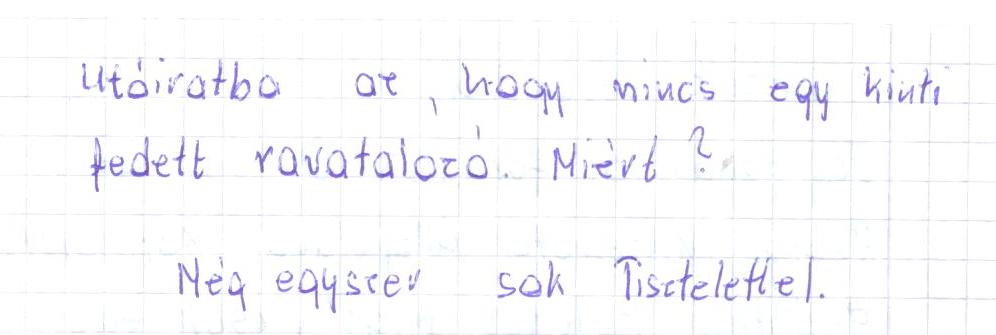 Utóiratba az, hogy nincs egy kinti
fedett ravatalozó. Miért?
Még egyszer sok Tisztelettel.